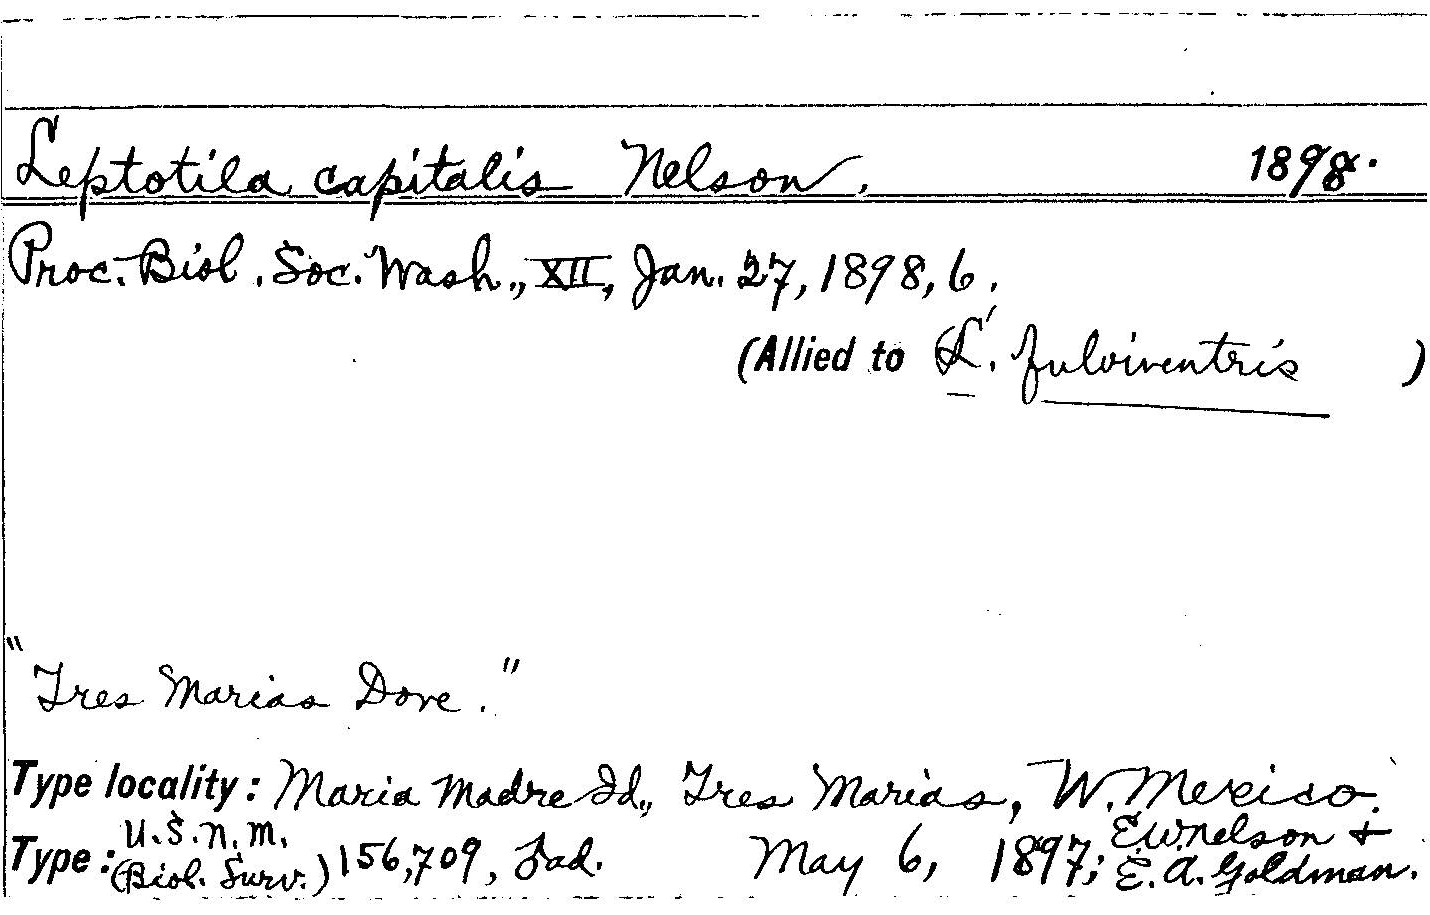 Leptotila capitalis Nelson. 1898.
Proc. Biol. Soc. Wash., XII, Jan. 27, 1898, 6.
(Allied to L. fulviventris )
"Tres Marias Dove."
Type locality: Maria Madre Id., Tres Marias, W. Mexico.
Type: U.S.N.M. (Biol. Surv.) 156,709, ad. May 6, 1897; E.W. Nelson + E. A. Goldman.